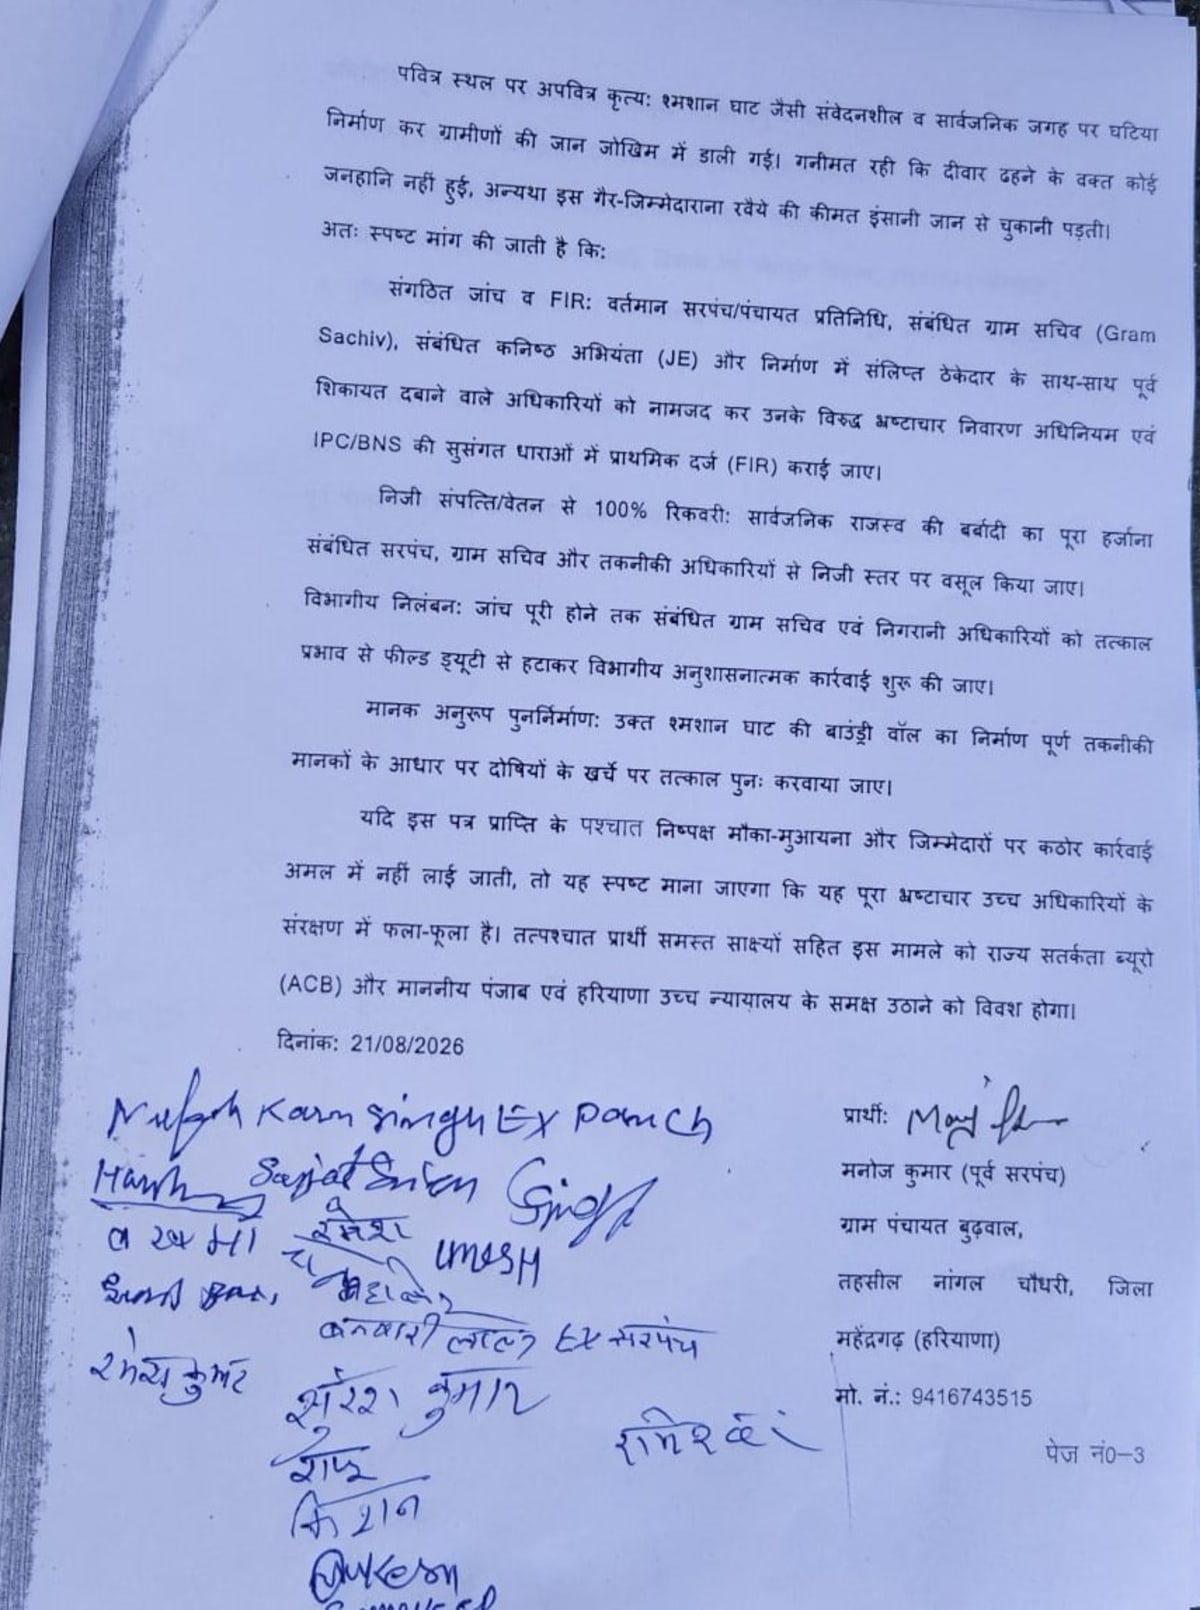 पवित्र स्थल पर अपवित्र कृत्य: श्मशान घाट जैसी संवेदनशील व सार्वजनिक जगह पर घटिया
निर्माण कर ग्रामीणों की जान जोखिम में डाली गई। गनीमत रही कि दीवार ढहने के वक्त कोई
जनहानि नहीं हुई, अन्यथा इस गैर-जिम्मेदाराना रवैये की कीमत इंसानी जान से चुकानी पड़ती।
अतः स्पष्ट मांग की जाती है कि:
संगठित जांच व FIR: वर्तमान सरपंच/पंचायत प्रतिनिधि, संबंधित ग्राम सचिव (Gram
Sachiv), संबंधित कनिष्ठ अभियंता (JE) और निर्माण में संलिप्त ठेकेदार के साथ-साथ पूर्व
शिकायत दबाने वाले अधिकारियों को नामजद कर उनके विरुद्ध भ्रष्टाचार निवारण अधिनियम एवं
IPC/BNS की सुसंगत धाराओं में प्राथमिक दर्ज (FIR) कराई जाए।
निजी संपत्ति/वेतन से 100% रिकवरी: सार्वजनिक राजस्व की बर्बादी का पूरा हर्जाना
संबंधित सरपंच, ग्राम सचिव और तकनीकी अधिकारियों से निजी स्तर पर वसूल किया जाए।
विभागीय निलंबन: जांच पूरी होने तक संबंधित ग्राम सचिव एवं निगरानी अधिकारियों को तत्काल
प्रभाव से फील्ड ड्यूटी से हटाकर विभागीय अनुशासनात्मक कार्रवाई शुरू की जाए।
मानक अनुरूप पुनर्निर्माण: उक्त श्मशान घाट की बाउंड्री वॉल का निर्माण पूर्ण तकनीकी
मानकों के आधार पर दोषियों के खर्चे पर तत्काल पुनः करवाया जाए।
यदि इस पत्र प्राप्ति के पश्चात निष्पक्ष मौका-मुआयना और जिम्मेदारों पर कठोर कार्रवाई
अमल में नहीं लाई जाती, तो यह स्पष्ट माना जाएगा कि यह पूरा भ्रष्टाचार उच्च अधिकारियों के
संरक्षण में फला-फूला है। तत्पश्चात प्रार्थी समस्त साक्ष्यों सहित इस मामले को राज्य सतर्कता ब्यूरो
(ACB) और माननीय पंजाब एवं हरियाणा उच्च न्यायालय के समक्ष उठाने को विवश होगा।
दिनांक: 21/08/2026
Karn Singh Ex Panch
प्रार्थी:
मनोज कुमार (पूर्व सरपंच)
ग्राम पंचायत बुढ़वाल,
तहसील नांगल चौधरी, जिला
महेंद्रगढ़ (हरियाणा)
मो. नं.: 9416743515
Singh
रमेश
UMESH
बनवारी लाल Ex सरपंच
रमेश कुमार
सुरेश कुमार
किशन
पेज नं0-3